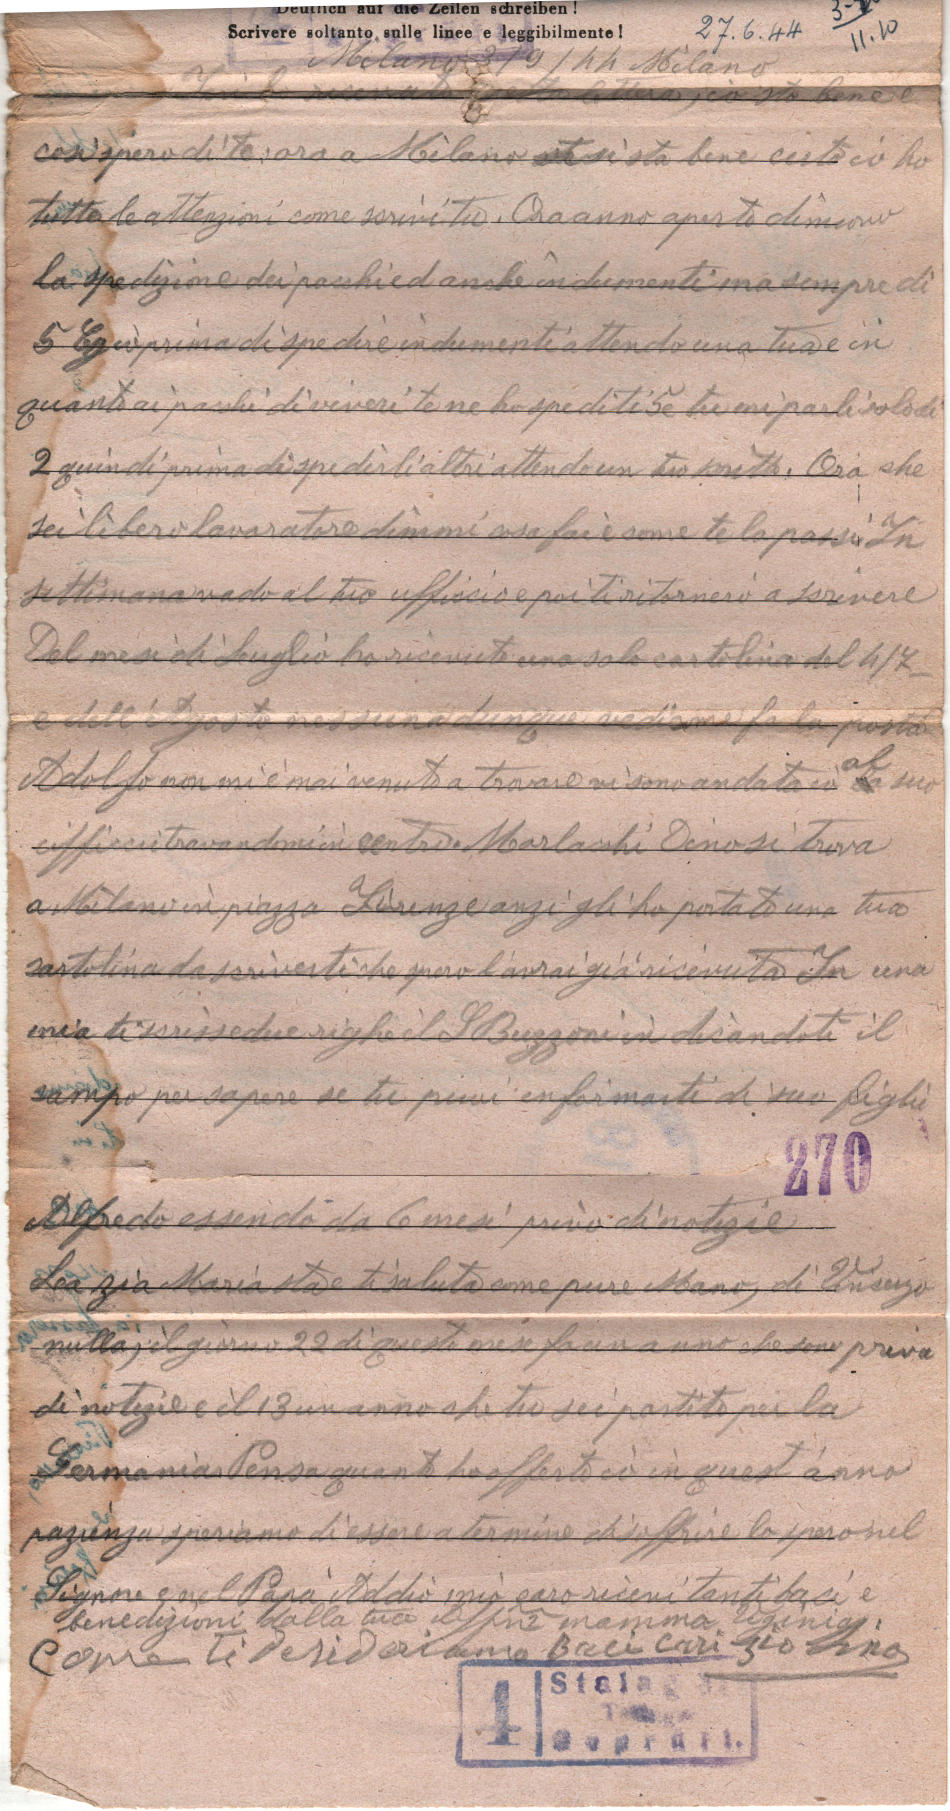 Deutlich auf die Zeilen schreiben!
Scrivere soltanto sulle linee e leggibilmente!
27.6.44
11.10
Milano 3/9/44 Milano
lettera, io sto bene e
cosi spero di te, ora a Milano si sta bene io ho
tutte le attenzioni come scrivi tu. Ora anno aperto di nuovo
la spedizione dei pacchi ed anche indumenti ma sempre di
5 Kg io prima di spedire indumenti attendo una tua e in
quanto ai pacchi di viveri te ne ho spediti 5 e tu mi parli solo di
2 quindi prima di spedirli altri attendo un tuo scritto. Ora che
sei libero lavoratore dimmi cosa fai e come te la passi In
settimana vado al tuo ufficcio e poi ti ritornerò a scrivere
Del mese di Luglio ho ricevuto una sola cartolina del 4/7
e dell'Agosto nessuna dunque vediamo fa la posta
Adolfo non mi è mai venuto a trovare vi sono andata io al suo
ufficcio trovandomi in centro. Morlacchi Dino si trova
a Milano in piazza Firenze anzi gli ho portato una tua
cartolina da scriverti che spero l'avrai già ricevuta In una
mia ti scrisse due righe il S Buzzoni in dicandoti il
campo per sapere se tu puoi informarti di suo figlio
270
Alfredo essendo da 6 mesi privo di notizie
La zia Maria sta e ti saluta come pure Mano, di Vincenzo
nulla, il giorno 22 di questo mese fa un anno che sono priva
di notizie e il 13 un anno che tu sei partito per la
Germania. Pensa quanto ho sofferto io in quest'anno
pazienza speriamo di essere a termine di soffrire lo spero nel
Signore e nel Papà Addio mio caro ricevi tanti baci e
benedizioni dalla tua mamma
ti desideriamo Baci cari zio
1
Stalag
Geprüft.